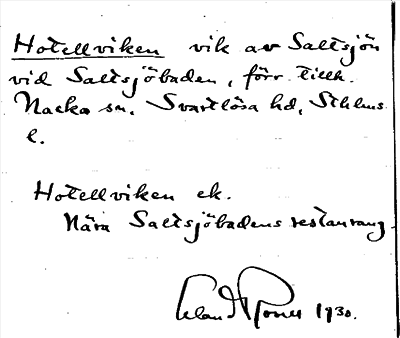 Hotellviken vik av Saltsjön
vid Saltsjöbaden, förr tillh.
Nacka sn. Svartlösa hd, Sthlms
l.
Hotellviken ek.
Nära Saltsjöbadens restaurang.
1930.